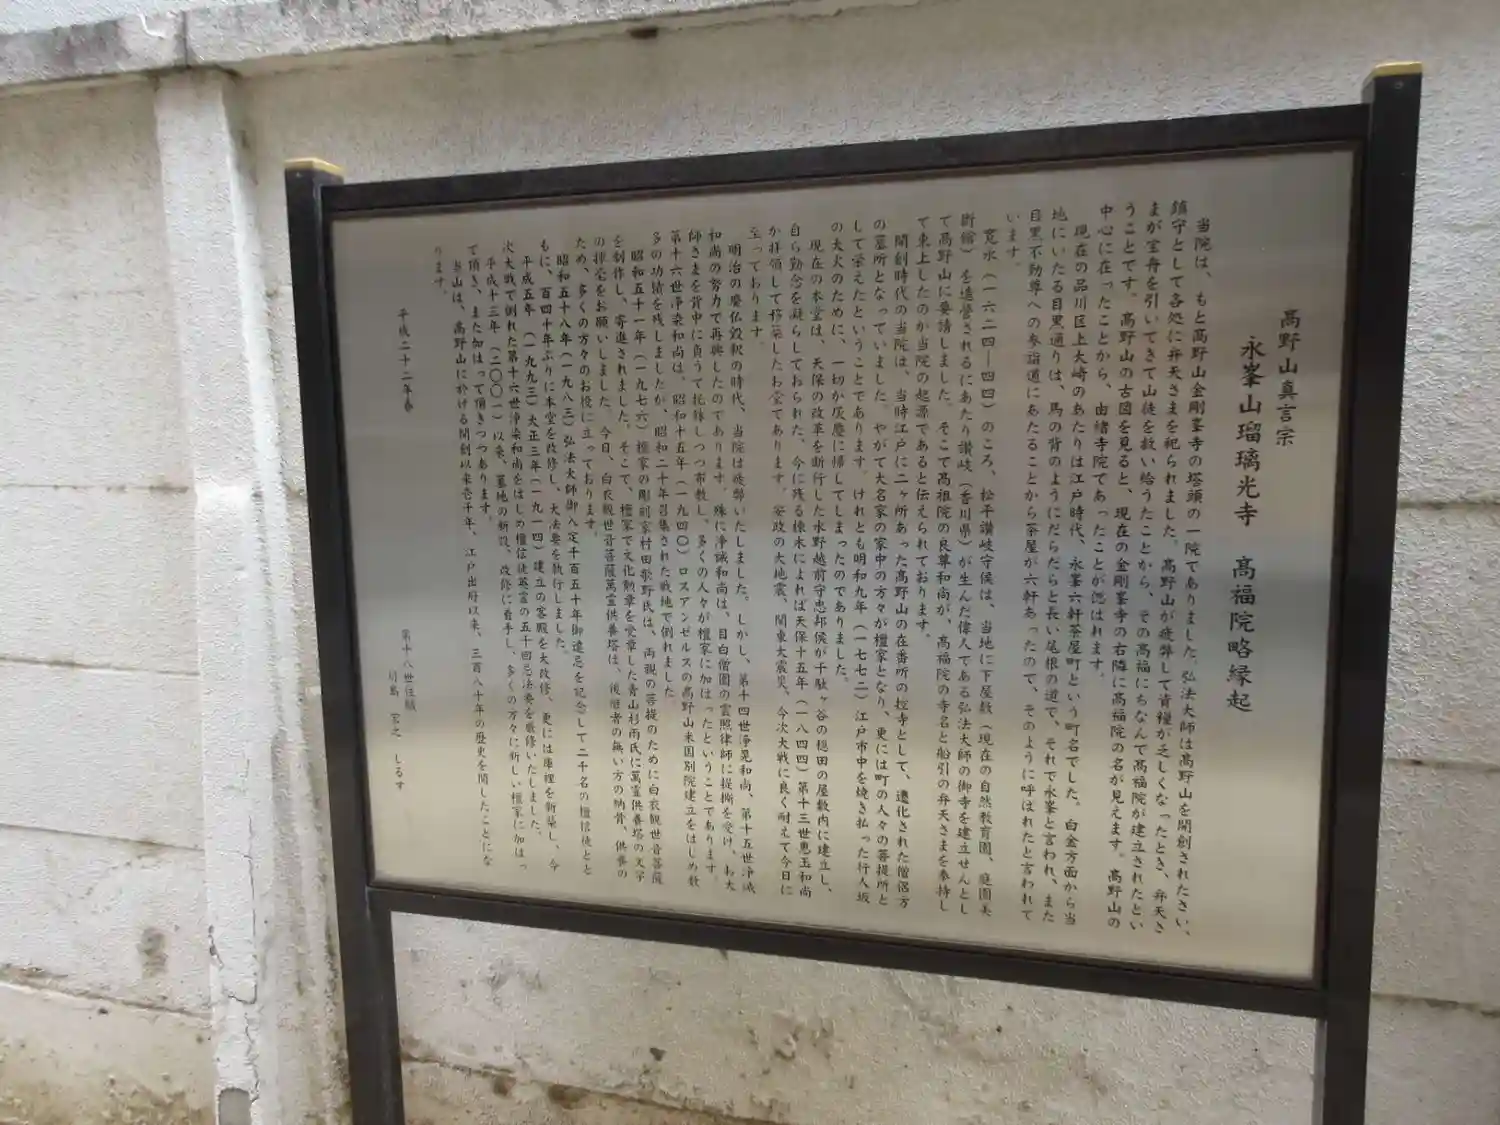 高野山真言宗
永峯山瑠璃光寺　高福院略縁起
当院は、もと高野山金剛峯寺の塔頭の一院でありました。弘法大師は高野山を開創されたさい、
鎮守として各処に弁天さまを祀られました。高野山が疲弊して資糧が乏しくなったとき、弁天さ
まが宝舟を引いてきて山徒を救い給うたことから、その高福にちなんで高福院が建立されたとい
うことです。高野山の古図を見ると、現在の金剛峯寺の右隣に高福院の名が見えます。高野山の
中心に在ったことから、由緒寺院であったことが偲ばれます。
現在の品川区上大崎のあたりは江戸時代、永峯六軒茶屋町という町名でした。白金方面から当
地にいたる目黒通りは、馬の背のようにだらだらと長い尾根の道で、それで永峯と言われ、また
目黒不動尊への参詣道にあたることから茶屋が六軒あったので、そのように呼ばれたと言われて
います。
寛永（一六二四―四四）のころ、松平讃岐守侯は、当地に下屋敷（現在の自然教育園、庭園美
術館）を造営されるにあたり讃岐（香川県）が生んだ偉人である弘法大師の御寺を建立せんとし
て高野山に要請しました。そこで高祖院の良尊和尚が、高福院の寺名と船引の弁天さまを奉持し
て東上したのが当院の起源であると伝えられております。
開創時代の当院は、当時江戸に二ヶ所あった高野山の在番所の控寺として、遷化された僧侶方
の墓所となっていました。やがて大名家の家中の方々が檀家となり、更には町の人々の菩提所と
して栄えたということであります。けれども明和九年（一七七二）江戸市中を焼き払った行人坂
の大火のために、一切が灰塵に帰してしまったのでありました。
現在の本堂は、天保の改革を断行した水野越前守忠邦侯が千駄ヶ谷の穏田の屋敷内に建立し、
自ら勤念を凝らしておられた、今に残る棟木によれば天保十五年（一八四四）第十三世恵玉和尚
が拝領して移築したお堂であります。安政の大地震、関東大震災、今次大戦に良く耐えて今日に
至っております。
明治の廃仏毀釈の時代、当院は疲弊いたしました。しかし、第十四世浄晃和尚、第十五世浄誠
和尚の努力で再興したのであります。殊に浄誠和尚は、目白僧園の雲照律師に提撕を受け、お大
師さまを背中に負うて托鉢しつつ布教し、多くの人々が檀家に加はったということであります。
第十六世浄染和尚は、昭和十五年（一九四〇）ロスアンゼルスの高野山米国別院建立をはじめ数
多の功績を残しましたが、昭和二十年召集された戦地で倒れました。
昭和五十一年（一九七六）檀家の彫刻家村田勝野氏は、両親の菩提のために白衣観世音菩薩
を制作し、寄進されました。そこで、檀家で文化勲章を受章した青山杉雨氏に萬霊供養塔の文字
の揮毫をお願いしました。今日、白衣観世音菩薩萬霊供養塔は、後継者の無い方の納骨、供養の
ため、多くの方々のお役に立っております。
昭和五十八年（一九八三）弘法大師御入定千百五十年御遠忌を記念して二千名の檀信徒とと
もに、百四十年ぶりに本堂を改修し、大法要を執行しました。
平成五年（一九九三）大正三年（一九一四）建立の客殿を大改修、更には庫裡を新築し、今
次大戦で倒れた第十六世浄染和尚をはじめ檀信徒英霊の五十回忌法要を厳修いたしました。
平成十三年（二〇〇一）以来、墓地の新設、改修に着手し、多くの方々に新しい檀家に加はっ
て頂き、また加はって頂きつつあります。
当山は、高野山に於ける開創以来壱千年、江戸出府以来、三百八十年の歴史を閲したことにな
ります。
平成二十二年春
第十八世住職
川島　宏之　しるす